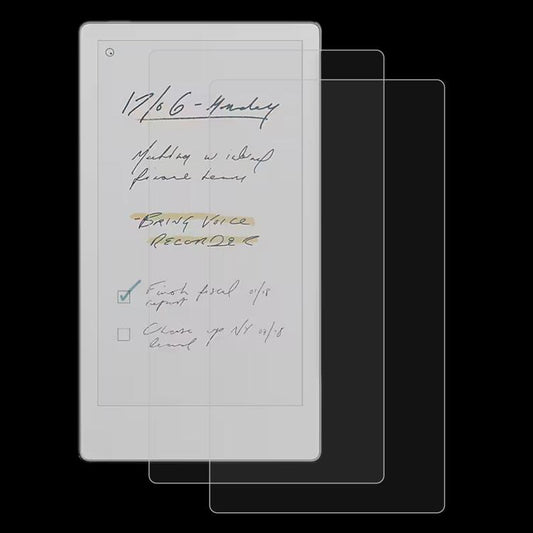 17/06 - Monday
Meeting w
finance team
- BRING VOICE
RECORDER
Finish fiscal 01/18
report
up NY 02/18